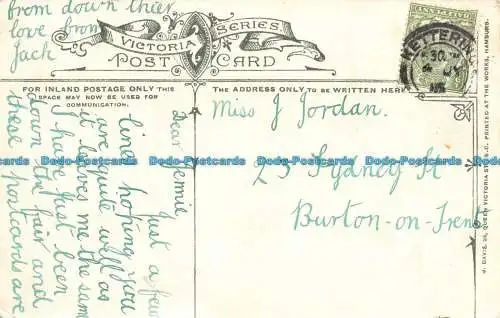 from down there
love from
Jack
VICTORIA SERIES
POST CARD
FOR INLAND POSTAGE ONLY THIS
SPACE MAY NOW BE USED FOR
COMMUNICATION.
THE ADDRESS ONLY TO BE WRITTEN HERE
KETTERING
Dear Jennie
just a few
lines hoping you
are quite well as
it leaves me the same
I have just been
down the fair and
these postcards are
Miss J Jordan.
23 Sydney St
Burton-on-Trent
J. DAVIS, 25, QUEEN VICTORIA ST., E.C. PRINTED AT THE WORKS, HAMBURG.
Bado-Dodo-Postcards